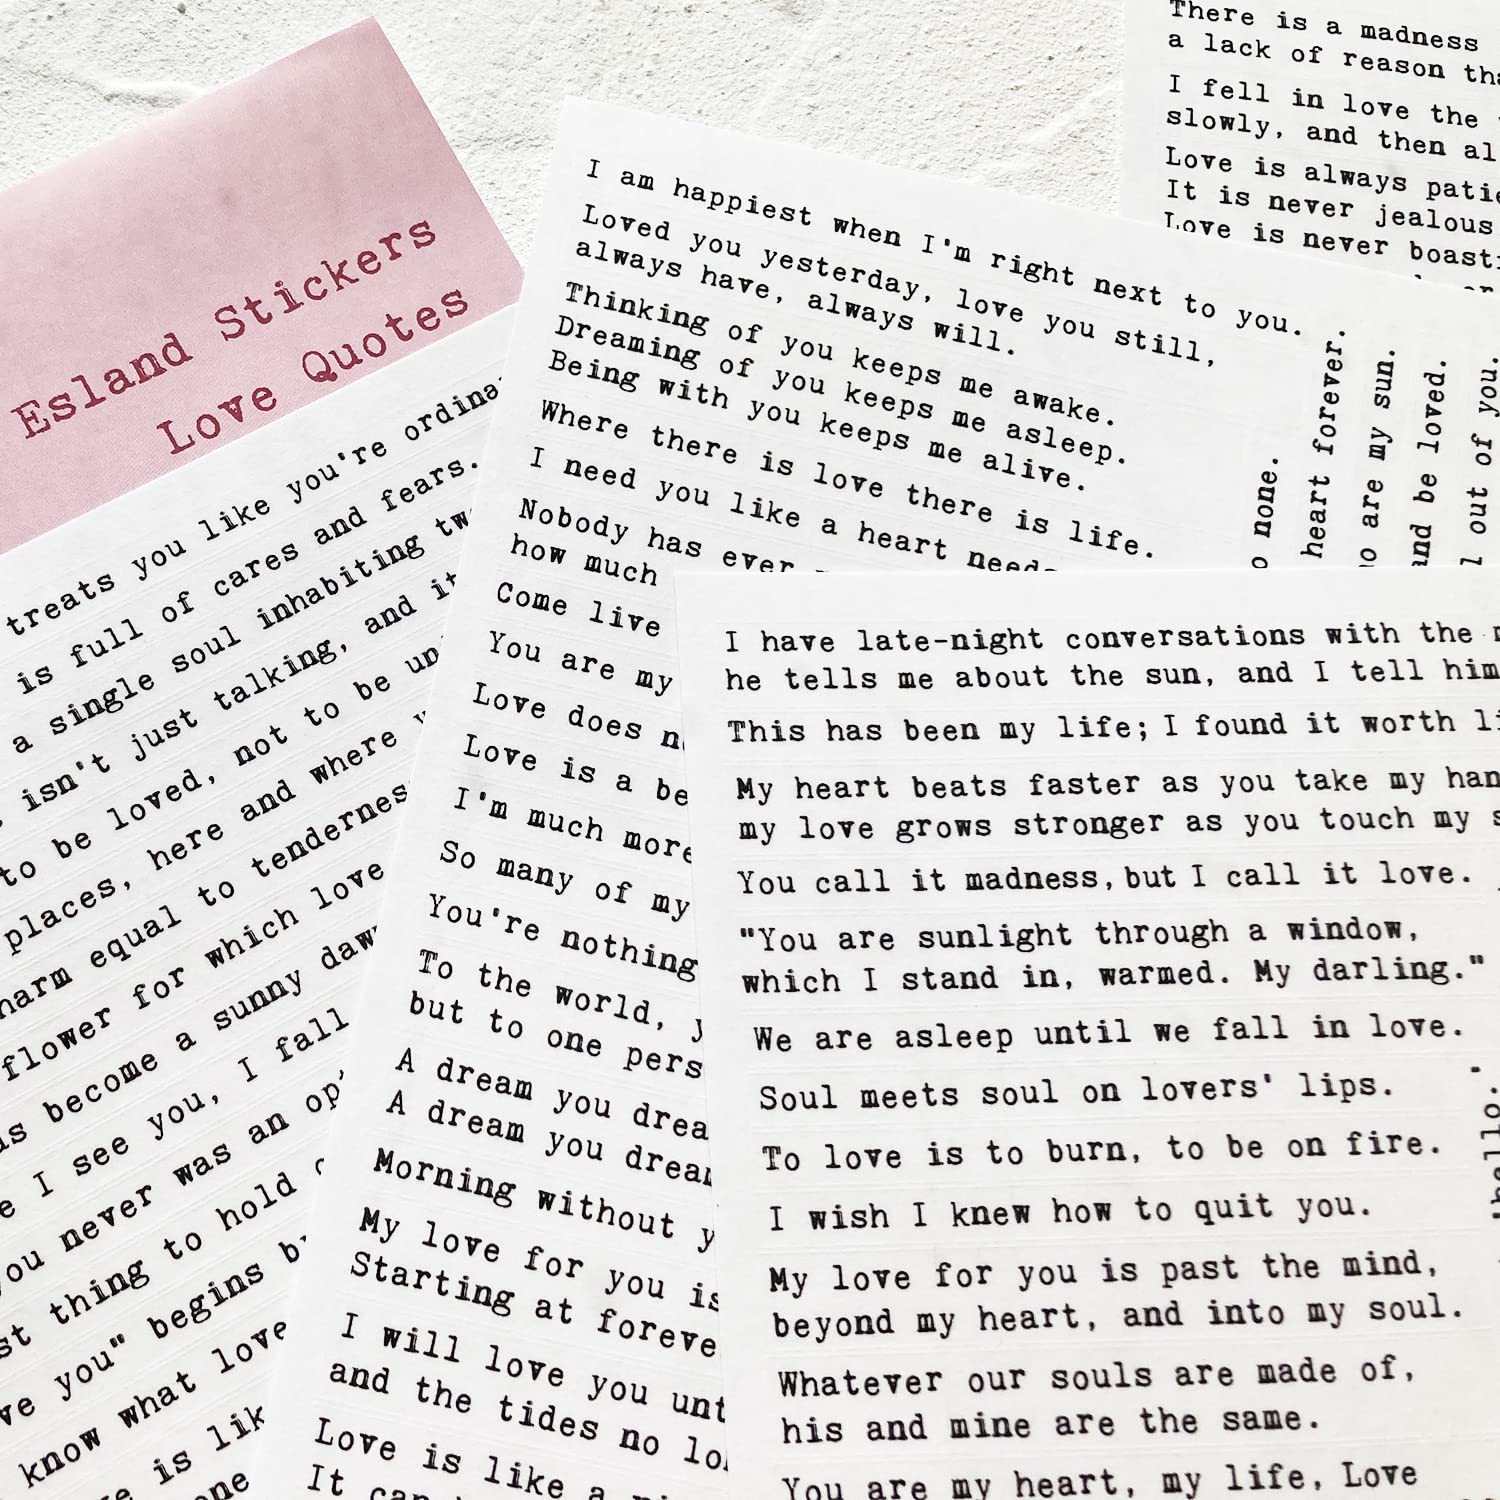 Esland Stickers
Love Quotes
treats you like you're
is full of cares and fears.
a single soul inhabiting
isn't just talking, and
to be loved, not to be
places, here and where
equal to
flower for which love
become a sunny
I see you, I fall
never was an
thing to hold
you" begins
know what love
is
I am happiest when I'm right next to you.
Loved you yesterday, love you still,
always have, always will.
Thinking of you keeps me awake.
Dreaming of you keeps me asleep.
Being with you keeps me alive.
Where there is love there is life.
I need you like a heart
Nobody has ever
how much
Come live
You are my
Love does
Love is a
I'm much
So many of my
You're nothing
To the world,
but to one
A dream you
A dream you
Morning without
My love for you
Starting at
I will love you
and the tides no
Love is like a
It
none.
heart forever.
are my sun.
and be loved.
out of you.
There is a madness
a lack of reason
I fell in love the
slowly, and then
Love is always
It is never jealous
Love is never
I have late-night conversations with the
he tells me about the sun, and I tell him
This has been my life; I found it worth
My heart beats faster as you take my
my love grows stronger as you touch my
You call it madness, but I call it love.
"You are sunlight through a window,
which I stand in, warmed. My darling."
We are asleep until we fall in love.
Soul meets soul on lovers' lips.
To love is to burn, to be on fire.
I wish I knew how to quit you.
My love for you is past the mind,
beyond my heart, and into my soul.
Whatever our souls are made of,
his and mine are the same.
You are my heart, my life, Love